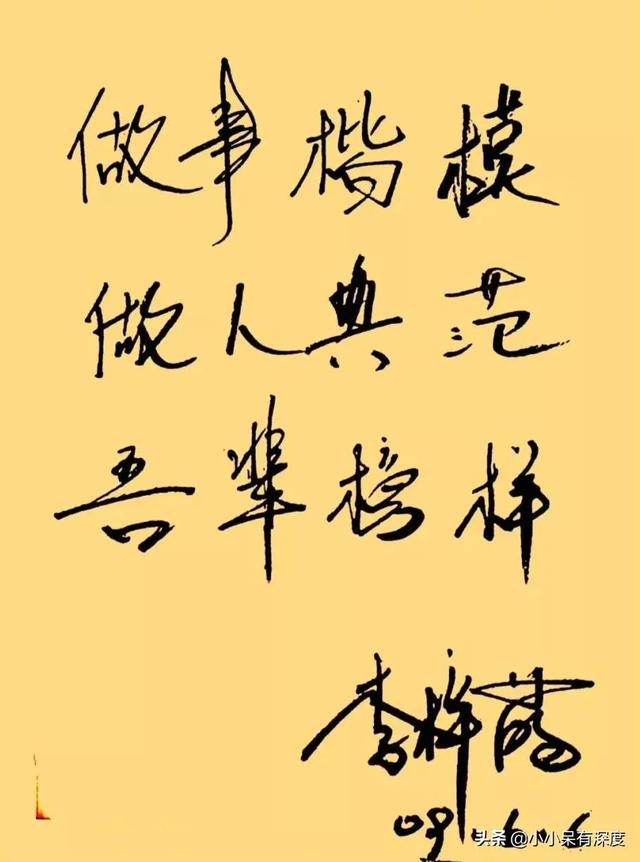 做事楷模
做人典范
吾辈榜样
李祥霆
08.6.6
头条 @小小呆有深度